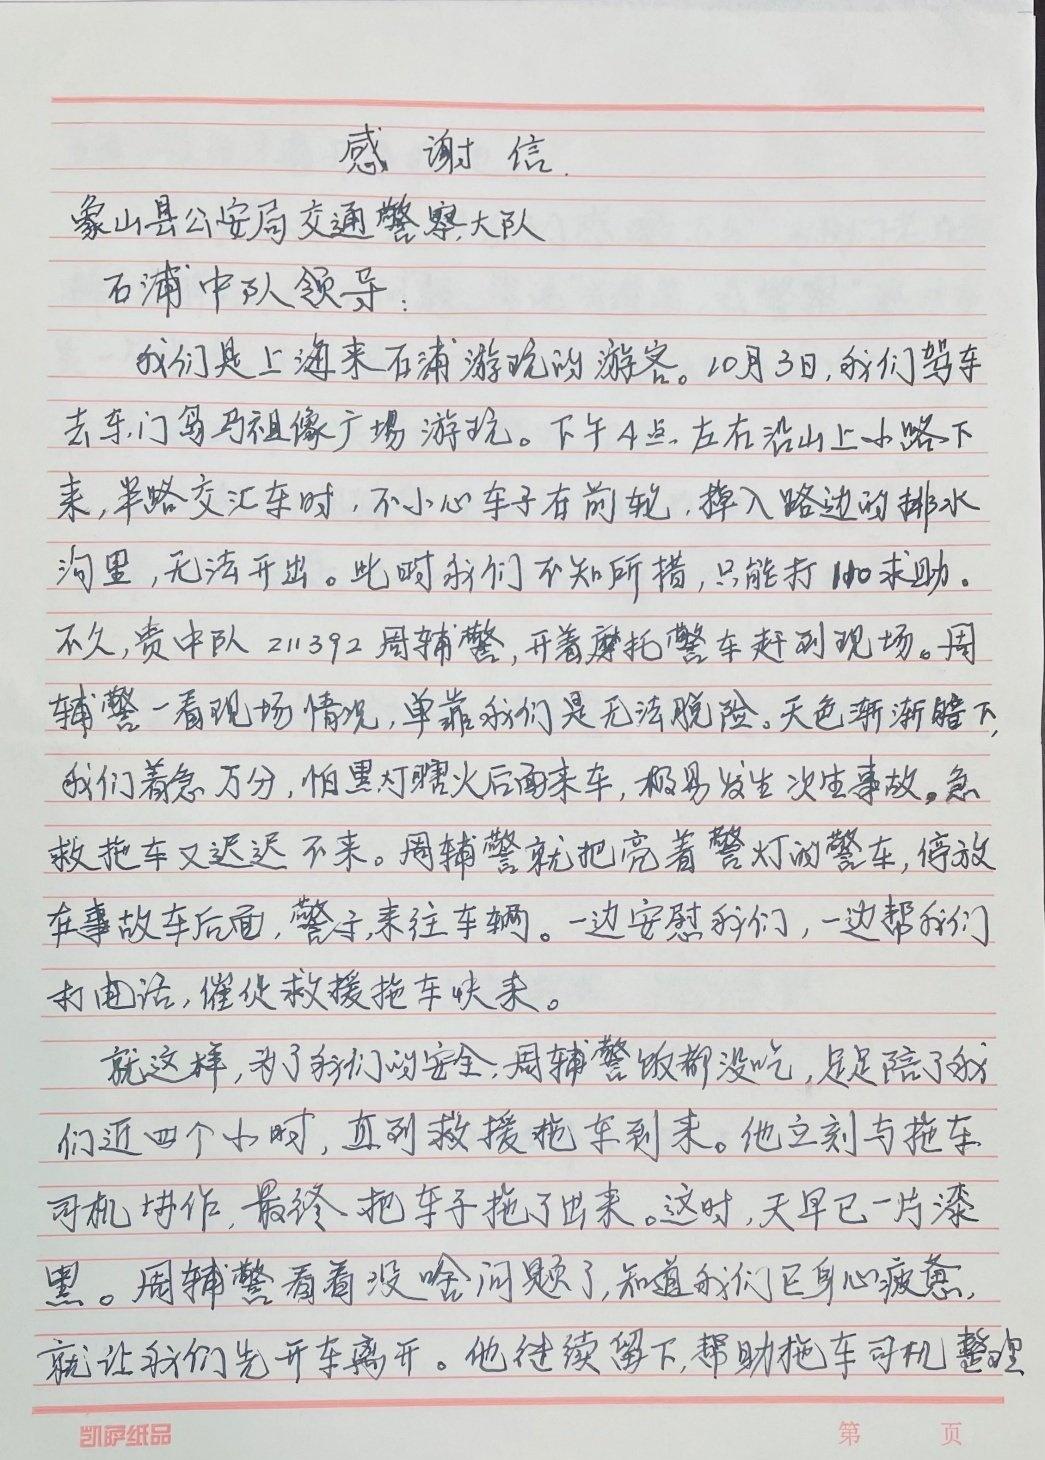 感谢信.
象山县公安局交通警察大队
石浦中队领导:
我们是上海来石浦游玩的游客。10月3日,我们驾车
去东门岛妈祖像广场游玩。下午4点左右沿山上小路下
来,半路交汇车时,不小心车子右前轮,掉入路边的排水
沟里,无法开出。此时我们不知所措,只能打110求助。
不久,贵中队211392周辅警,开着摩托警车赶到现场。周
辅警一看现场情况,单靠我们是无法脱险。天色渐渐暗下,
我们着急万分,怕黑灯瞎火后面来车,极易发生次生事故。急
救拖车又迟迟不来。周辅警就把亮着警灯的警车,停放
在事故车后面,警示来往车辆。一边安慰我们,一边帮我们
打电话,催促救援拖车快来。
就这样,为了我们的安全,周辅警饭都没吃,足足陪了我
们近四个小时,直到救援拖车到来。他立刻与拖车
司机协作,最终把车子拖了出来。这时,天早已一片漆
黑。周辅警看着没啥问题了,知道我们已身心疲惫,
就让我们先开车离开。他继续留下,帮助拖车司机整理
凯萨纸品
第 页